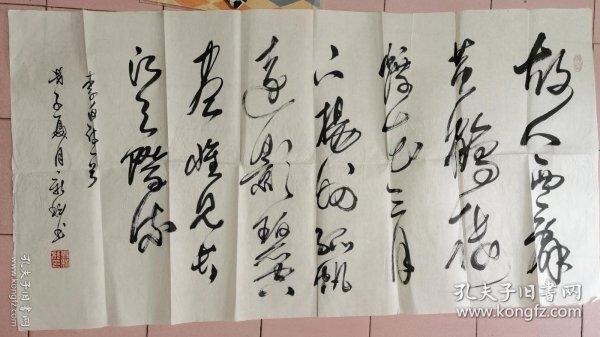 故人西辞
黄鹤楼
烟花三月
下揚州孤帆
远影碧空
尽惟见长
江天际流
李白诗一首
夏月
书
孔夫子旧书网
www.kongfz.com
孔夫子旧书网
www.kongfz.com